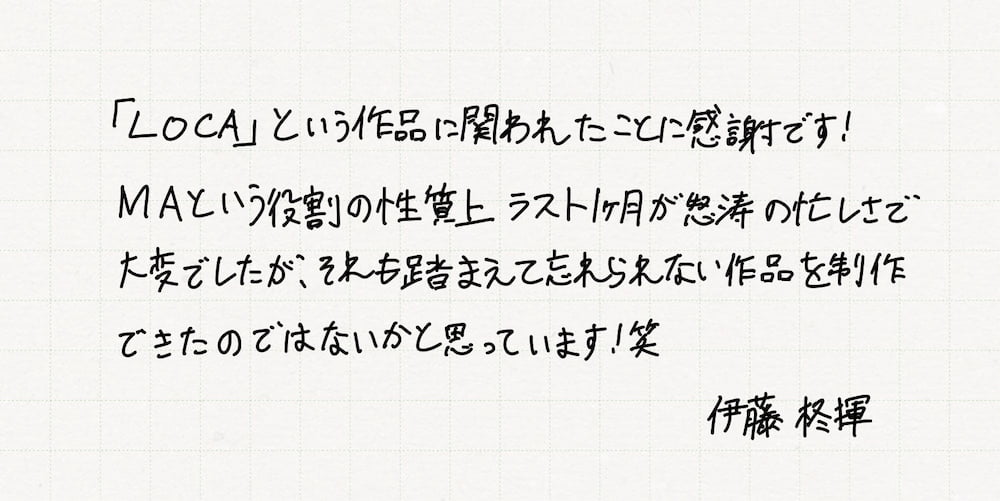 「LOCA」という作品に関われたことに感謝です!
MAという役割の性質上 ラスト1ヶ月が怒涛の忙しさで
大変でしたが、それも踏まえて忘れられない作品を制作
できたのではないかと思っています!笑
伊藤 柊揮